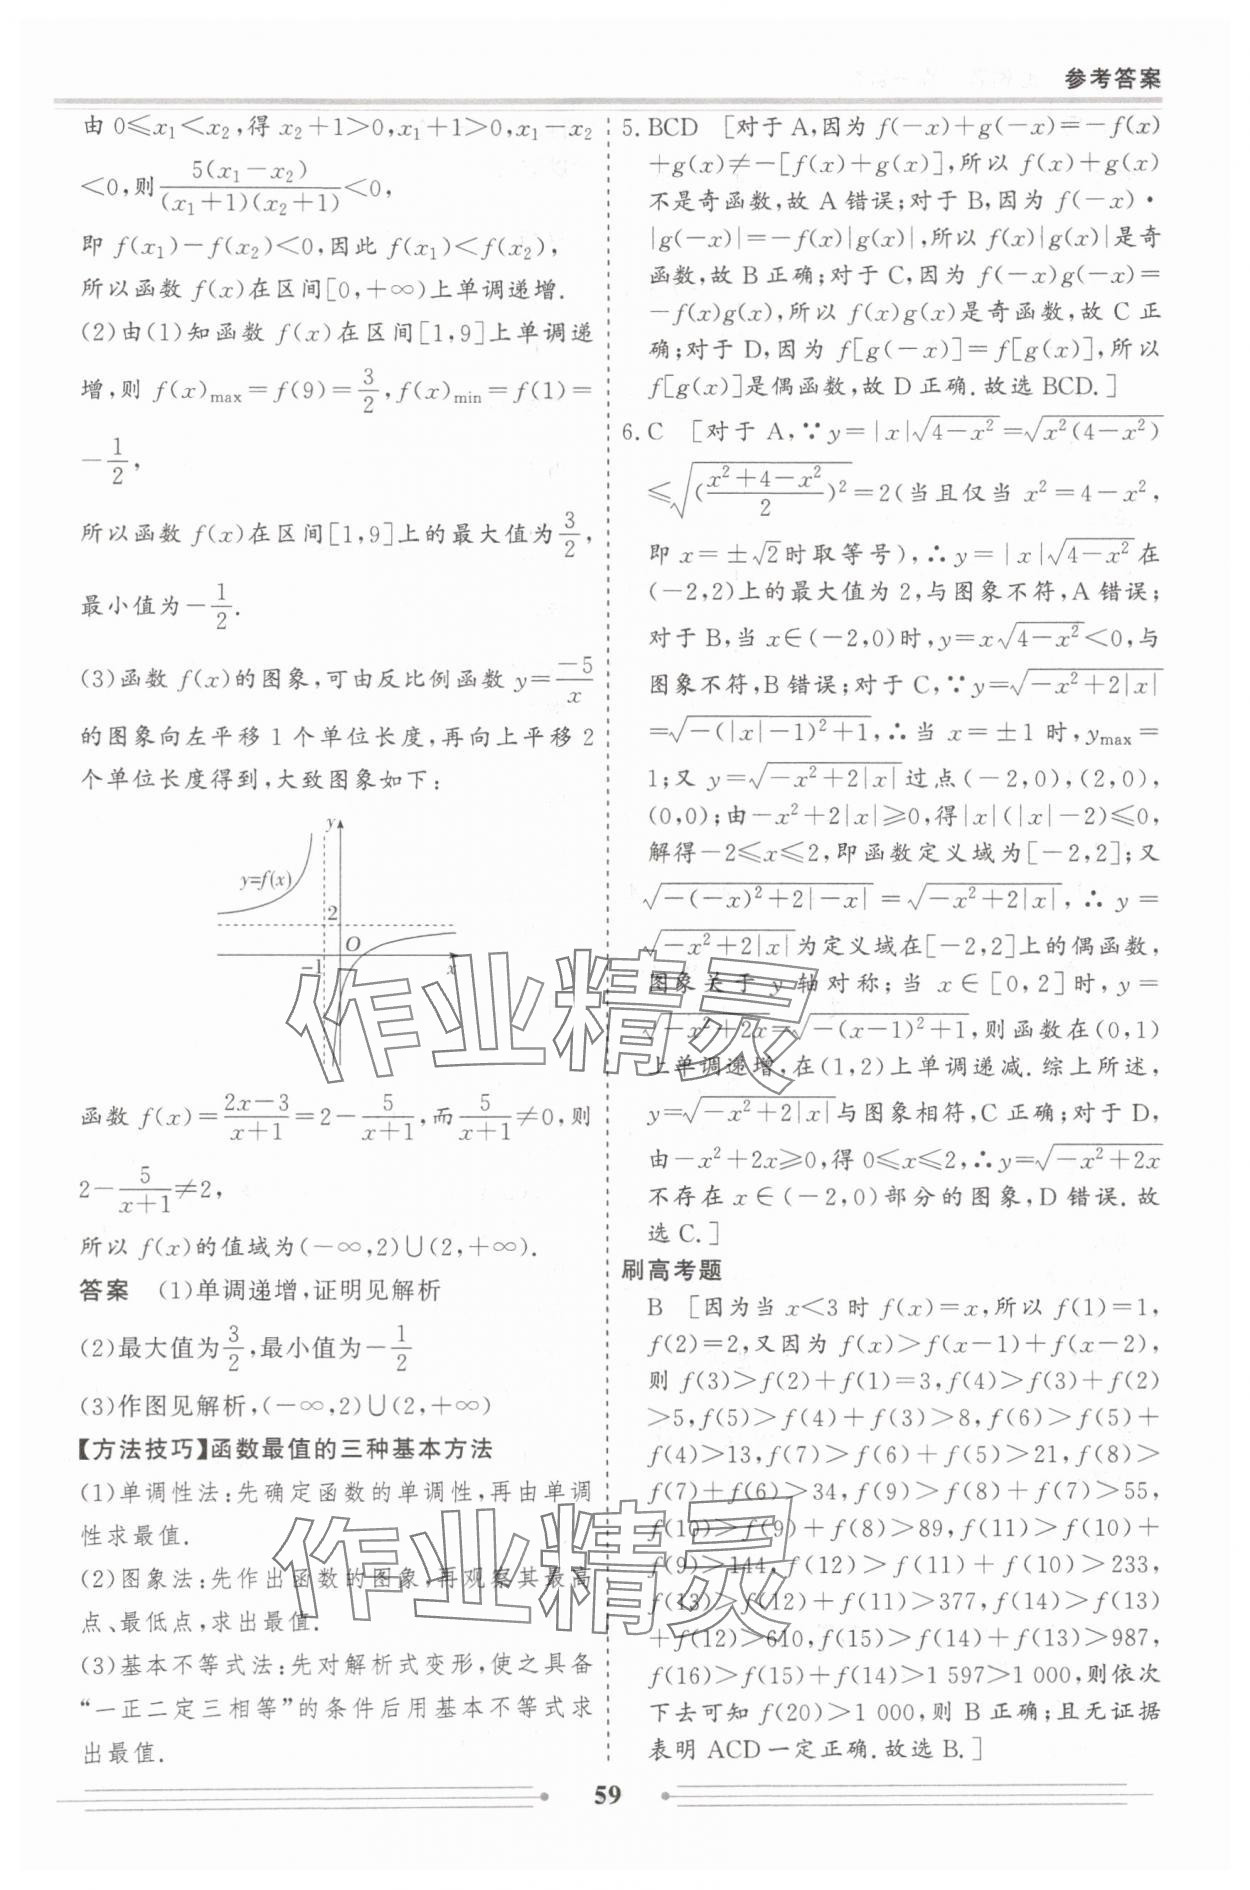 参考答案
由 0≤x₁<x₂,得 x₂+1>0,x₁+1>0,x₁-x₂
<0,则 5(x₁-x₂)/((x₁+1)(x₂+1))<0,
即 f(x₁)-f(x₂)<0,因此 f(x₁)<f(x₂),
所以函数 f(x)在区间[0,+∞)上单调递增.
(2)由(1)知函数 f(x)在区间[1,9]上单调递
增,则 f(x)max=f(9)=3/2,f(x)min=f(1)=
-1/2,
所以函数 f(x)在区间[1,9]上的最大值为3/2,
最小值为-1/2.
(3)函数 f(x)的图象,可由反比例函数 y=-5/x
的图象向左平移 1 个单位长度,再向上平移 2
个单位长度得到,大致图象如下:
y
y=f(x)
2
O
-1
x
函数 f(x)=(2x-3)/(x+1)=2-5/(x+1),而5/(x+1)≠0,则
2-5/(x+1)≠2,
所以 f(x)的值域为(-∞,2)∪(2,+∞).
答案 (1)单调递增,证明见解析
(2)最大值为3/2,最小值为-1/2
(3)作图见解析,(-∞,2)∪(2,+∞)
【方法技巧】函数最值的三种基本方法
(1)单调性法:先确定函数的单调性,再由单调
性求最值.
(2)图象法:先作出函数的图象,再观察其最高
点、最低点,求出最值.
(3)基本不等式法:先对解析式变形,使之具备
“一正二定三相等”的条件后用基本不等式求
出最值.
5. BCD [对于 A,因为 f(-x)+g(-x)=-f(x)
+g(x)≠-[f(x)+g(x)],所以 f(x)+g(x)
不是奇函数,故 A 错误;对于 B,因为 f(-x)·
|g(-x)|=-f(x)|g(x)|,所以 f(x)|g(x)|是奇
函数,故 B 正确;对于 C,因为 f(-x)g(-x)=
-f(x)g(x),所以 f(x)g(x)是奇函数,故 C 正
确;对于 D,因为 f[g(-x)]=f[g(x)],所以
f[g(x)]是偶函数,故 D 正确.故选 BCD.]
6. C [对于 A,∵y=|x|√(4-x²)=√(x²(4-x²))
≤√(((x²+4-x²)/2)²)=2(当且仅当 x²=4-x²,
即 x=±√2时取等号),∴y=|x|√(4-x²)在
(-2,2)上的最大值为 2,与图象不符,A 错误;
对于 B,当 x∈(-2,0)时,y=x√(4-x²)<0,与
图象不符,B 错误;对于 C,∵y=√(-x²+2|x|)
=√(-(|x|-1)²+1),∴当 x=±1 时,ymax=
1;又 y=√(-x²+2|x|)过点(-2,0),(2,0),
(0,0);由-x²+2|x|≥0,得|x|(|x|-2)≤0,
解得-2≤x≤2,即函数定义域为[-2,2];又
√(-(-x)²+2|-x|)=√(-x²+2|x|),∴y=
√(-x²+2|x|)为定义域在[-2,2]上的偶函数,
图象关于 y 轴对称;当 x∈[0,2]时,y=
√(-x²+2x)=√(-(x-1)²+1),则函数在(0,1)
上单调递增,在(1,2)上单调递减.综上所述,
y=√(-x²+2|x|)与图象相符,C 正确;对于 D,
由-x²+2x≥0,得 0≤x≤2,∴y=√(-x²+2x)
不存在 x∈(-2,0)部分的图象,D 错误.故
选 C.]
刷高考题
B [因为当 x<3 时 f(x)=x,所以 f(1)=1,
f(2)=2,又因为 f(x)>f(x-1)+f(x-2),
则 f(3)>f(2)+f(1)=3,f(4)>f(3)+f(2)
>5,f(5)>f(4)+f(3)>8,f(6)>f(5)+
f(4)>13,f(7)>f(6)+f(5)>21,f(8)>
f(7)+f(6)>34,f(9)>f(8)+f(7)>55,
f(10)>f(9)+f(8)>89,f(11)>f(10)+
f(9)>144,f(12)>f(11)+f(10)>233,
f(13)>f(12)+f(11)>377,f(14)>f(13)
+f(12)>610,f(15)>f(14)+f(13)>987,
f(16)>f(15)+f(14)>1 597>1 000,则依次
下去可知 f(20)>1 000,则 B 正确;且无证据
表明 ACD 一定正确.故选 B.]
作业精灵
作业精灵
59